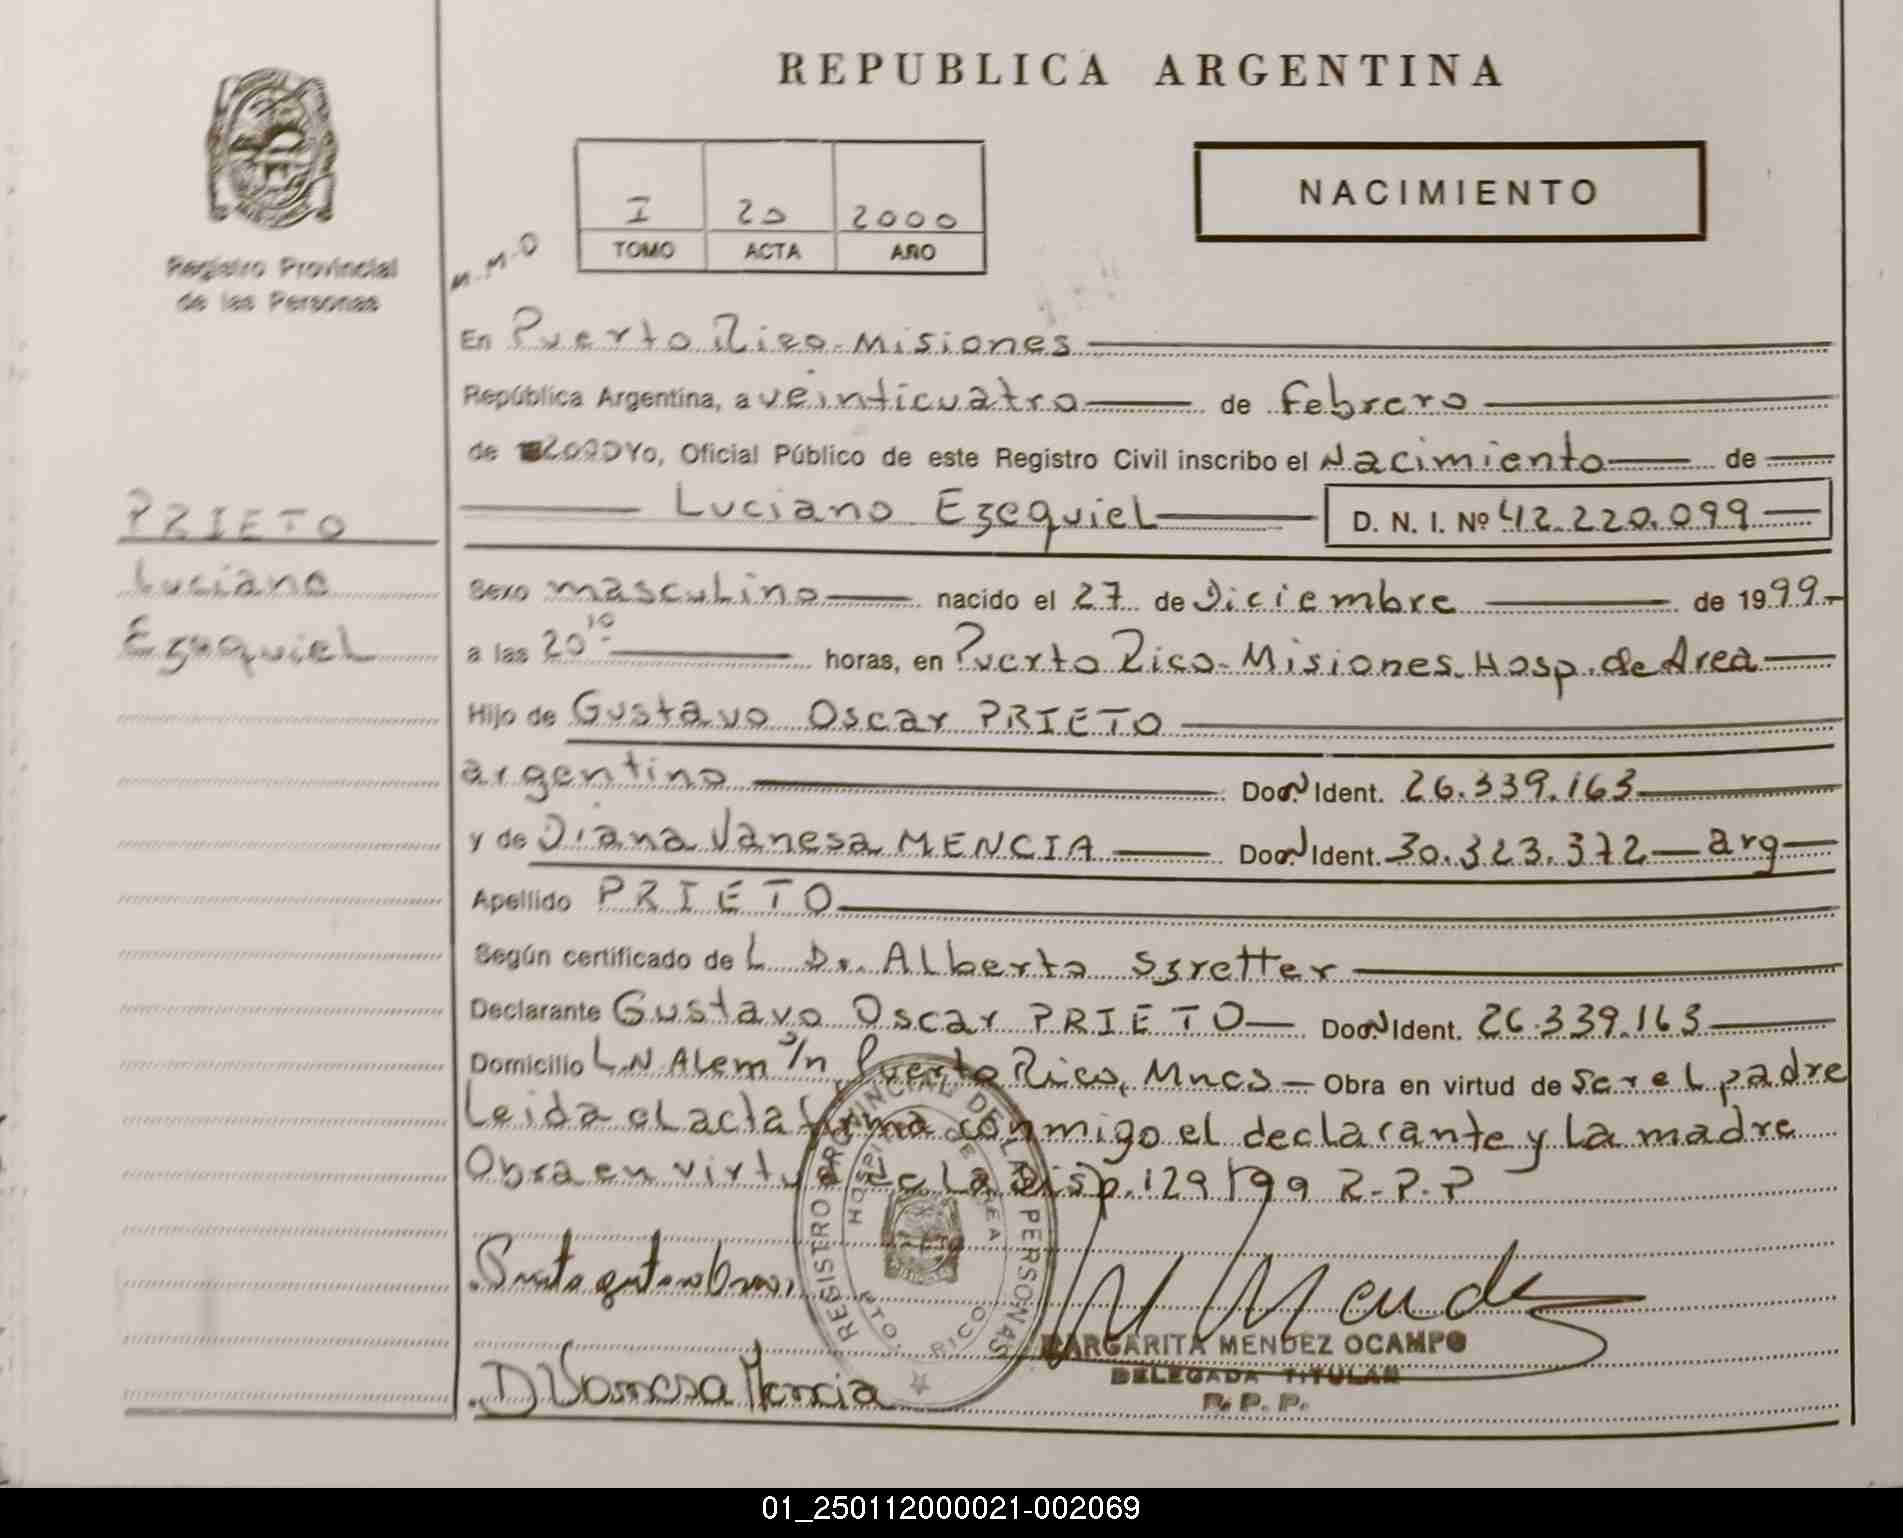 REPUBLICA ARGENTINA
NACIMIENTO
I 20 2000
TOMO ACTA AÑO
Registro Provincial
de las Personas
M.M.O
En Puerto Rico-Misiones
República Argentina, a veinticuatro de Febrero
de 2000 Yo, Oficial Público de este Registro Civil inscribo el Nacimiento de
Luciano Ezequiel D. N. I. Nº 42.220.099
PRIETO
Luciano
Ezequiel
Sexo masculino nacido el 27 de Diciembre de 1999
a las 20 10 horas, en Puerto Rico-Misiones. Hosp. de Area
Hijo de Gustavo Oscar PRIETO
argentino Ident. 26.339.163
y de Diana Vanesa MENCIA Ident. 30.323.372 arg
Apellido PRIETO
Según certificado de L Dr. Alberto Szretter
Declarante Gustavo Oscar PRIETO Ident. 26.339.163
Domicilio L.N Alem s/n Puerto Rico, Mnes Obra en virtud de ser el padre
Leida el acta firma conmigo el declarante y La madre
Obra en virtud de La Disp. 129/99 R.P.P
REGISTRO PROVINCIAL DE LAS PERSONAS
HOSPITAL DE AREA
PTO. RICO
Prieto Gustavo Oscar
D Vanesa Mencia
MARGARITA MENDEZ OCAMPO
DELEGADA TITULAR
R. P. P.
01_250112000021-002069